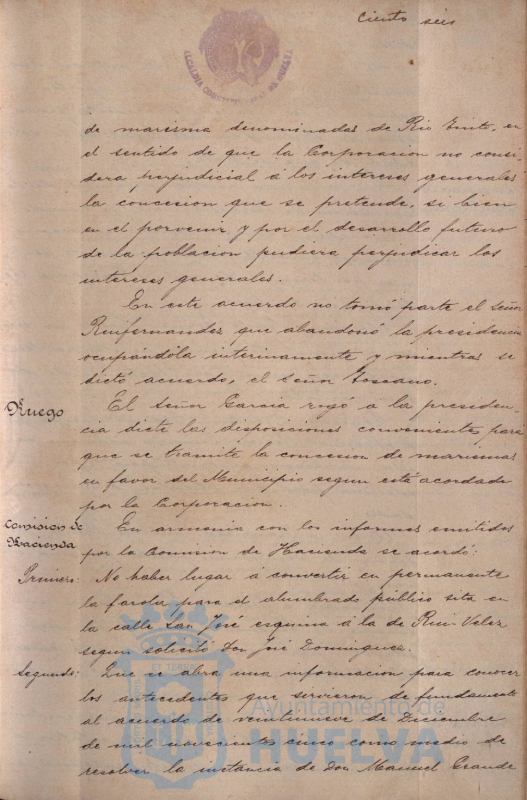 ciento seis
ALCALDIA CONSTITUCIONAL DE HUELVA
de marisma denominadas de Rio Tinto, en
el sentido de que la Corporacion no consi
dera perjudicial á los intereses generales
la concesion que se pretende, si bien
en el porvenir y por el desarrollo futuro
de la poblacion pudiera perjudicar los
intereses generales.
En este acuerdo no tomó parte el señor
Ruifernandez que abandonó la presidencia
ocupándola interinamente y mientras se
dictó acuerdo, el Señor Toscano.
Ruego
El Señor Garcia rogó á la presiden-
cia dicte las disposiciones conveniente para
que se tramite la concesion de marismas
en favor del Municipio segun está acordado
por la Corporacion.
Comision de
Hacienda
En armonia con los informes emitidos
por la Comision de Hacienda se acordó:
Primero: No haber lugar á convertir en permanente
la farola para el alumbrado público sita en
la calle San José esquina á la de Rui Velez
segun solicitó Don José Dominguez.
Segundo: Que se abra una informacion para conocer
los antecedentes que sirvieron de fundamento
al acuerdo de veintinueve de Diciembre
de mil novecientos cinco como medio de
resolver la instancia de Don Manuel Grande
Ayuntamiento de
HUELVA